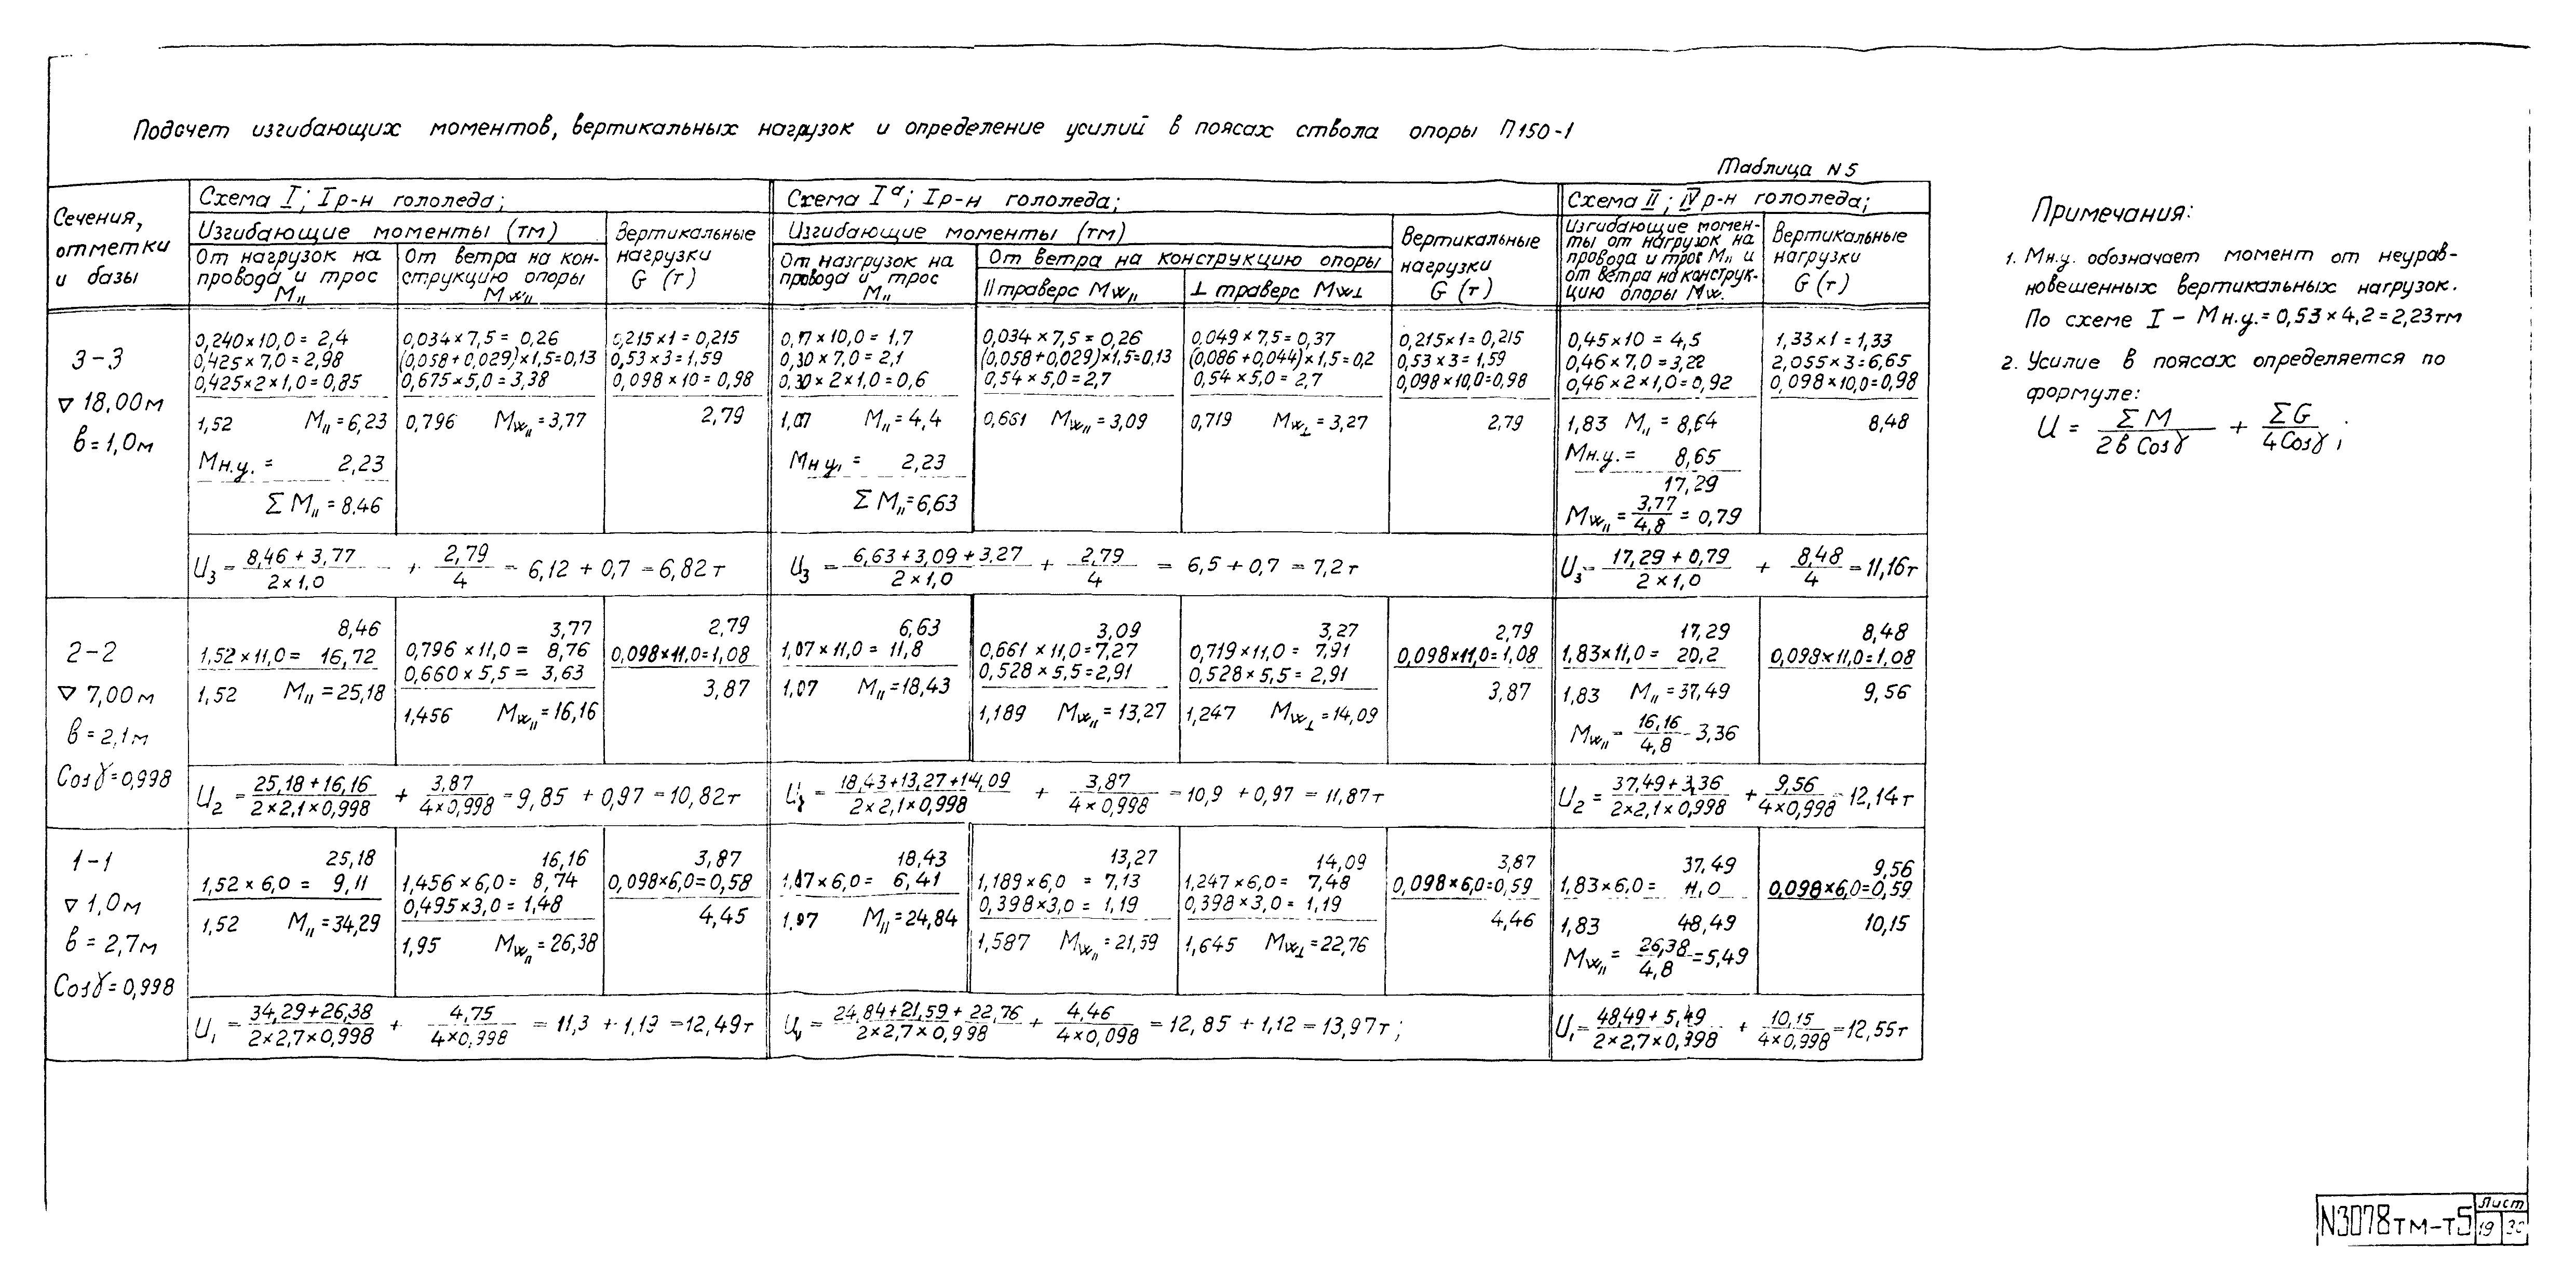 Подсчет изгибающих моментов, вертикальных нагрузок и определение усилий в поясах ствола опоры П150-1
Таблица N5
Сечения, отметки и базы
Схема I; I р-н гололеда;
Изгибающие моменты (тм)
От нагрузок на провода и трос M||
От ветра на конструкцию опоры Mw||
Вертикальные нагрузки G (т)
Схема Iа; I р-н гололеда;
Изгибающие моменты (тм)
От назгрузок на провода и трос M||
От ветра на конструкцию опоры
|| траверс Mw||
⊥ траверс Mw⊥
Вертикальные нагрузки G (т)
Схема II; IV р-н гололеда;
Изгибающие моменты от нагрузок на провода и трос M|| и от ветра на конструкцию опоры Mw.
Вертикальные нагрузки G (т)
3-3
▽ 18,00м
в=1,0м
0,240×10,0=2,4
0,425×7,0=2,98
0,425×2×1,0=0,85
1,52 M||=6,23
Mн.у.= 2,23
ΣM||=8,46
0,034×7,5=0,26
(0,058+0,029)×1,5=0,13
0,675×5,0=3,38
0,796 Mw||=3,77
0,215×1=0,215
0,53×3=1,59
0,098×10=0,98
2,79
0,17×10,0=1,7
0,30×7,0=2,1
0,30×2×1,0=0,6
1,07 M||=4,4
Mн.у.= 2,23
ΣM||=6,63
0,034×7,5=0,26
(0,058+0,029)×1,5=0,13
0,54×5,0=2,7
0,661 Mw||=3,09
0,049×7,5=0,37
(0,086+0,044)×1,5=0,2
0,54×5,0=2,7
0,719 Mw⊥=3,27
0,215×1=0,215
0,53×3=1,59
0,098×10,0=0,98
2,79
0,45×10=4,5
0,46×7,0=3,22
0,46×2×1,0=0,92
1,83 M||=8,64
Mн.у.= 8,65
17,29
Mw||=3,77/4,8=0,79
1,33×1=1,33
2,055×3=6,65
0,098×10,0=0,98
8,48
U3=(8,46+3,77)/(2×1,0) + 2,79/4 = 6,12+0,7=6,82т
U3=(6,63+3,09+3,27)/(2×1,0) + 2,79/4 = 6,5+0,7=7,2т
U3=(17,29+0,79)/(2×1,0) + 8,48/4 =11,16т
2-2
▽ 7,00м
в=2,1м
Cosγ=0,998
8,46
1,52×11,0= 16,72
1,52 M||=25,18
3,77
0,796×11,0= 8,76
0,660×5,5= 3,63
1,456 Mw||=16,16
2,79
0,098×11,0=1,08
3,87
6,63
1,07×11,0= 11,8
1,07 M||=18,43
3,09
0,661×11,0=7,27
0,528×5,5=2,91
1,189 Mw||=13,27
3,27
0,719×11,0= 7,91
0,528×5,5= 2,91
1,247 Mw⊥=14,09
2,79
0,098×11,0=1,08
3,87
17,29
1,83×11,0= 20,2
1,83 M||=37,49
Mw||=16,16/4,8=3,36
8,48
0,098×11,0=1,08
9,56
U2=(25,18+16,16)/(2×2,1×0,998) + 3,87/(4×0,998) =9,85+0,97=10,82т
U2=(18,43+13,27+14,09)/(2×2,1×0,998) + 3,87/(4×0,998) =10,9+0,97=11,87т
U2=(37,49+3,36)/(2×2,1×0,998) + 9,56/(4×0,998) =12,14т
1-1
▽ 1,0м
в=2,7м
Cosγ=0,998
25,18
1,52×6,0= 9,11
1,52 M||=34,29
16,16
1,456×6,0= 8,74
0,495×3,0=1,48
1,95 Mw||=26,38
3,87
0,098×6,0=0,58
4,45
18,43
1,07×6,0= 6,41
1,07 M||=24,84
13,27
1,189×6,0 =7,13
0,398×3,0=1,19
1,587 Mw||=21,59
14,09
1,247×6,0= 7,48
0,398×3,0= 1,19
1,645 Mw⊥=22,76
3,87
0,098×6,0=0,59
4,46
37,49
1,83×6,0= 11,0
1,83 48,49
Mw||=26,38/4,8=5,49
9,56
0,098×6,0=0,59
10,15
U1=(34,29+26,38)/(2×2,7×0,998) + 4,75/(4×0,998) =11,3+1,19=12,49т
U1=(24,84+21,59+22,76)/(2×2,7×0,998) + 4,46/(4×0,098) =12,85+1,12=13,97т;
U1=(48,49+5,49)/(2×2,7×0,998) + 10,15/(4×0,998) =12,55т
Примечания:
1. Mн.у. обозначает момент от неурав-
новешенных вертикальных нагрузок.
По схеме I – Mн.у.=0,53×4,2=2,23тм
2. Усилие в поясах определяется по
формуле:
U = ΣM/(2в Cosγ) + ΣG/(4Cosγ);
N3078тм-т5
Лист
19